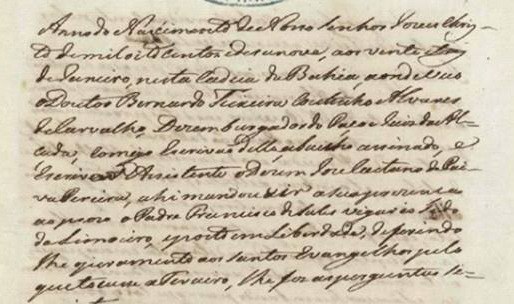 Anno do Nascimento de Nosso Senhor Jesus Chris-
to de mil oito centos e desanove, aos vinte e seis
de Janeiro, nesta Cadeia da Bahia, aonde veio
o Doutor Bernardo Teixeira Coutinho Alvares
de Carvalho, Dezembargador do Paço e Juis da Al-
çada, comigo Escrivão della abaicho assinado, e
Escrivão Assistente o Dezem. Jose Caetano de Pai-
va Pereira, ahi mandou vir a sua presença
ao prezo o Padre Francisco de Sales vigario
do Limoeiro, e posto em Liberdade, deferindo
lhe juramento aos santos Evangelhos pelo
que tocava a Terceiro, lhe fez as perguntas se-